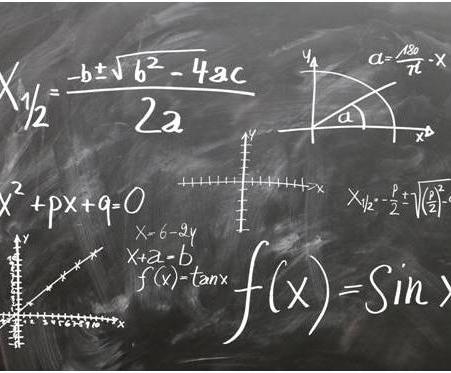 X₁/₂ = -b±√b²-4ac / 2a
y
a = 180/π · x
a
x
y
x
x²+px+q=0
X₁/₂ = -p/2 ± √(p/2)²-
x=6-2y
x+a=b
f(x)=tanx
y
x
f(x)=Sin x